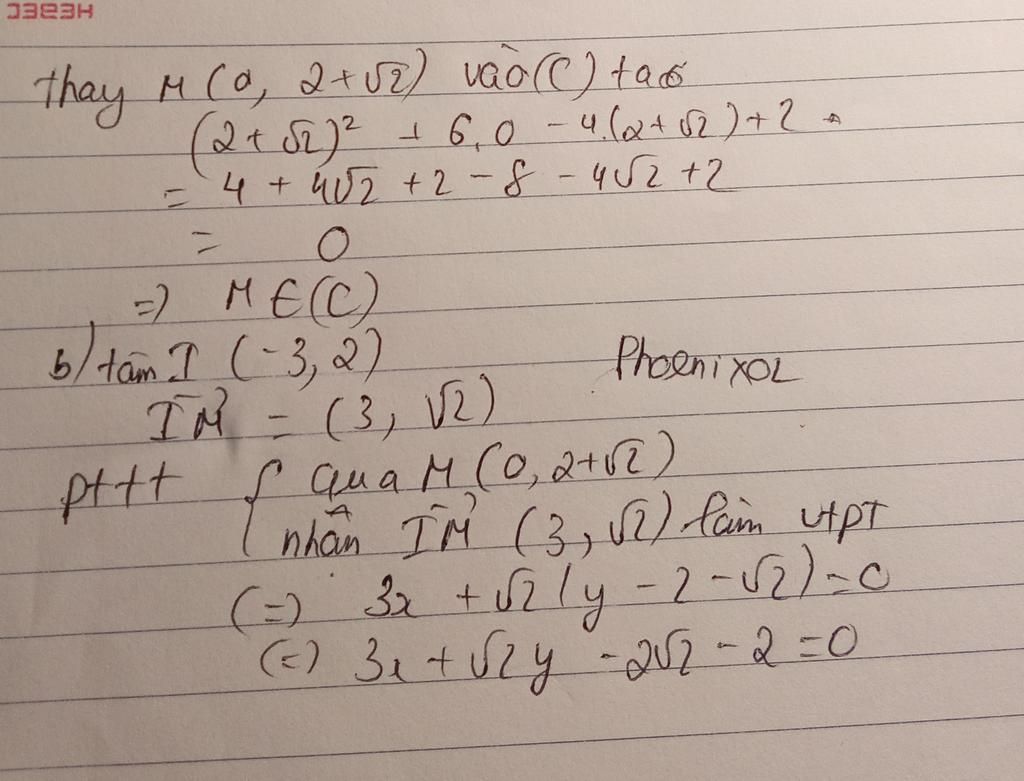 HESEC
thay M (0, 2+√2) vào (C) ta có
(2+√2)² + 6.0 - 4.(2+√2)+2
= 4 + 4√2 + 2 - 8 - 4√2 + 2
= 0
=) M ∈ (C)
b) tâm I (-3, 2)
PhoenixOL
IM = (3, √2)
pttt { qua M (0, 2+√2)
nhận IM (3, √2) làm vtpt
(=) 3x + √2 (y - 2 - √2) = 0
(=) 3x + √2y - 2√2 - 2 = 0